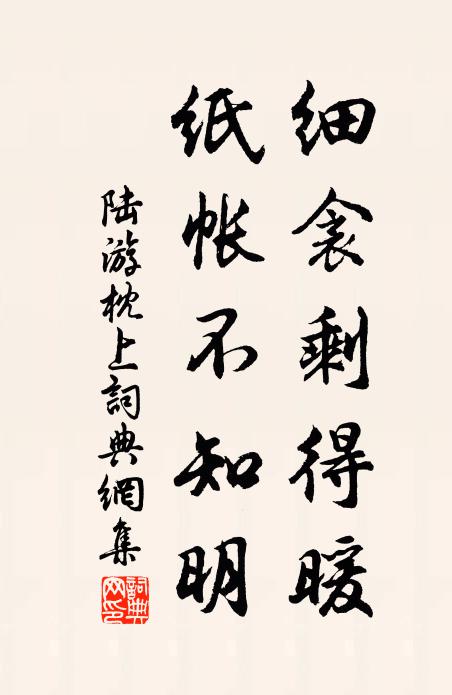 细衾剩得暖
纸帐不知明
陆游枕上詞典網集
詞典網印